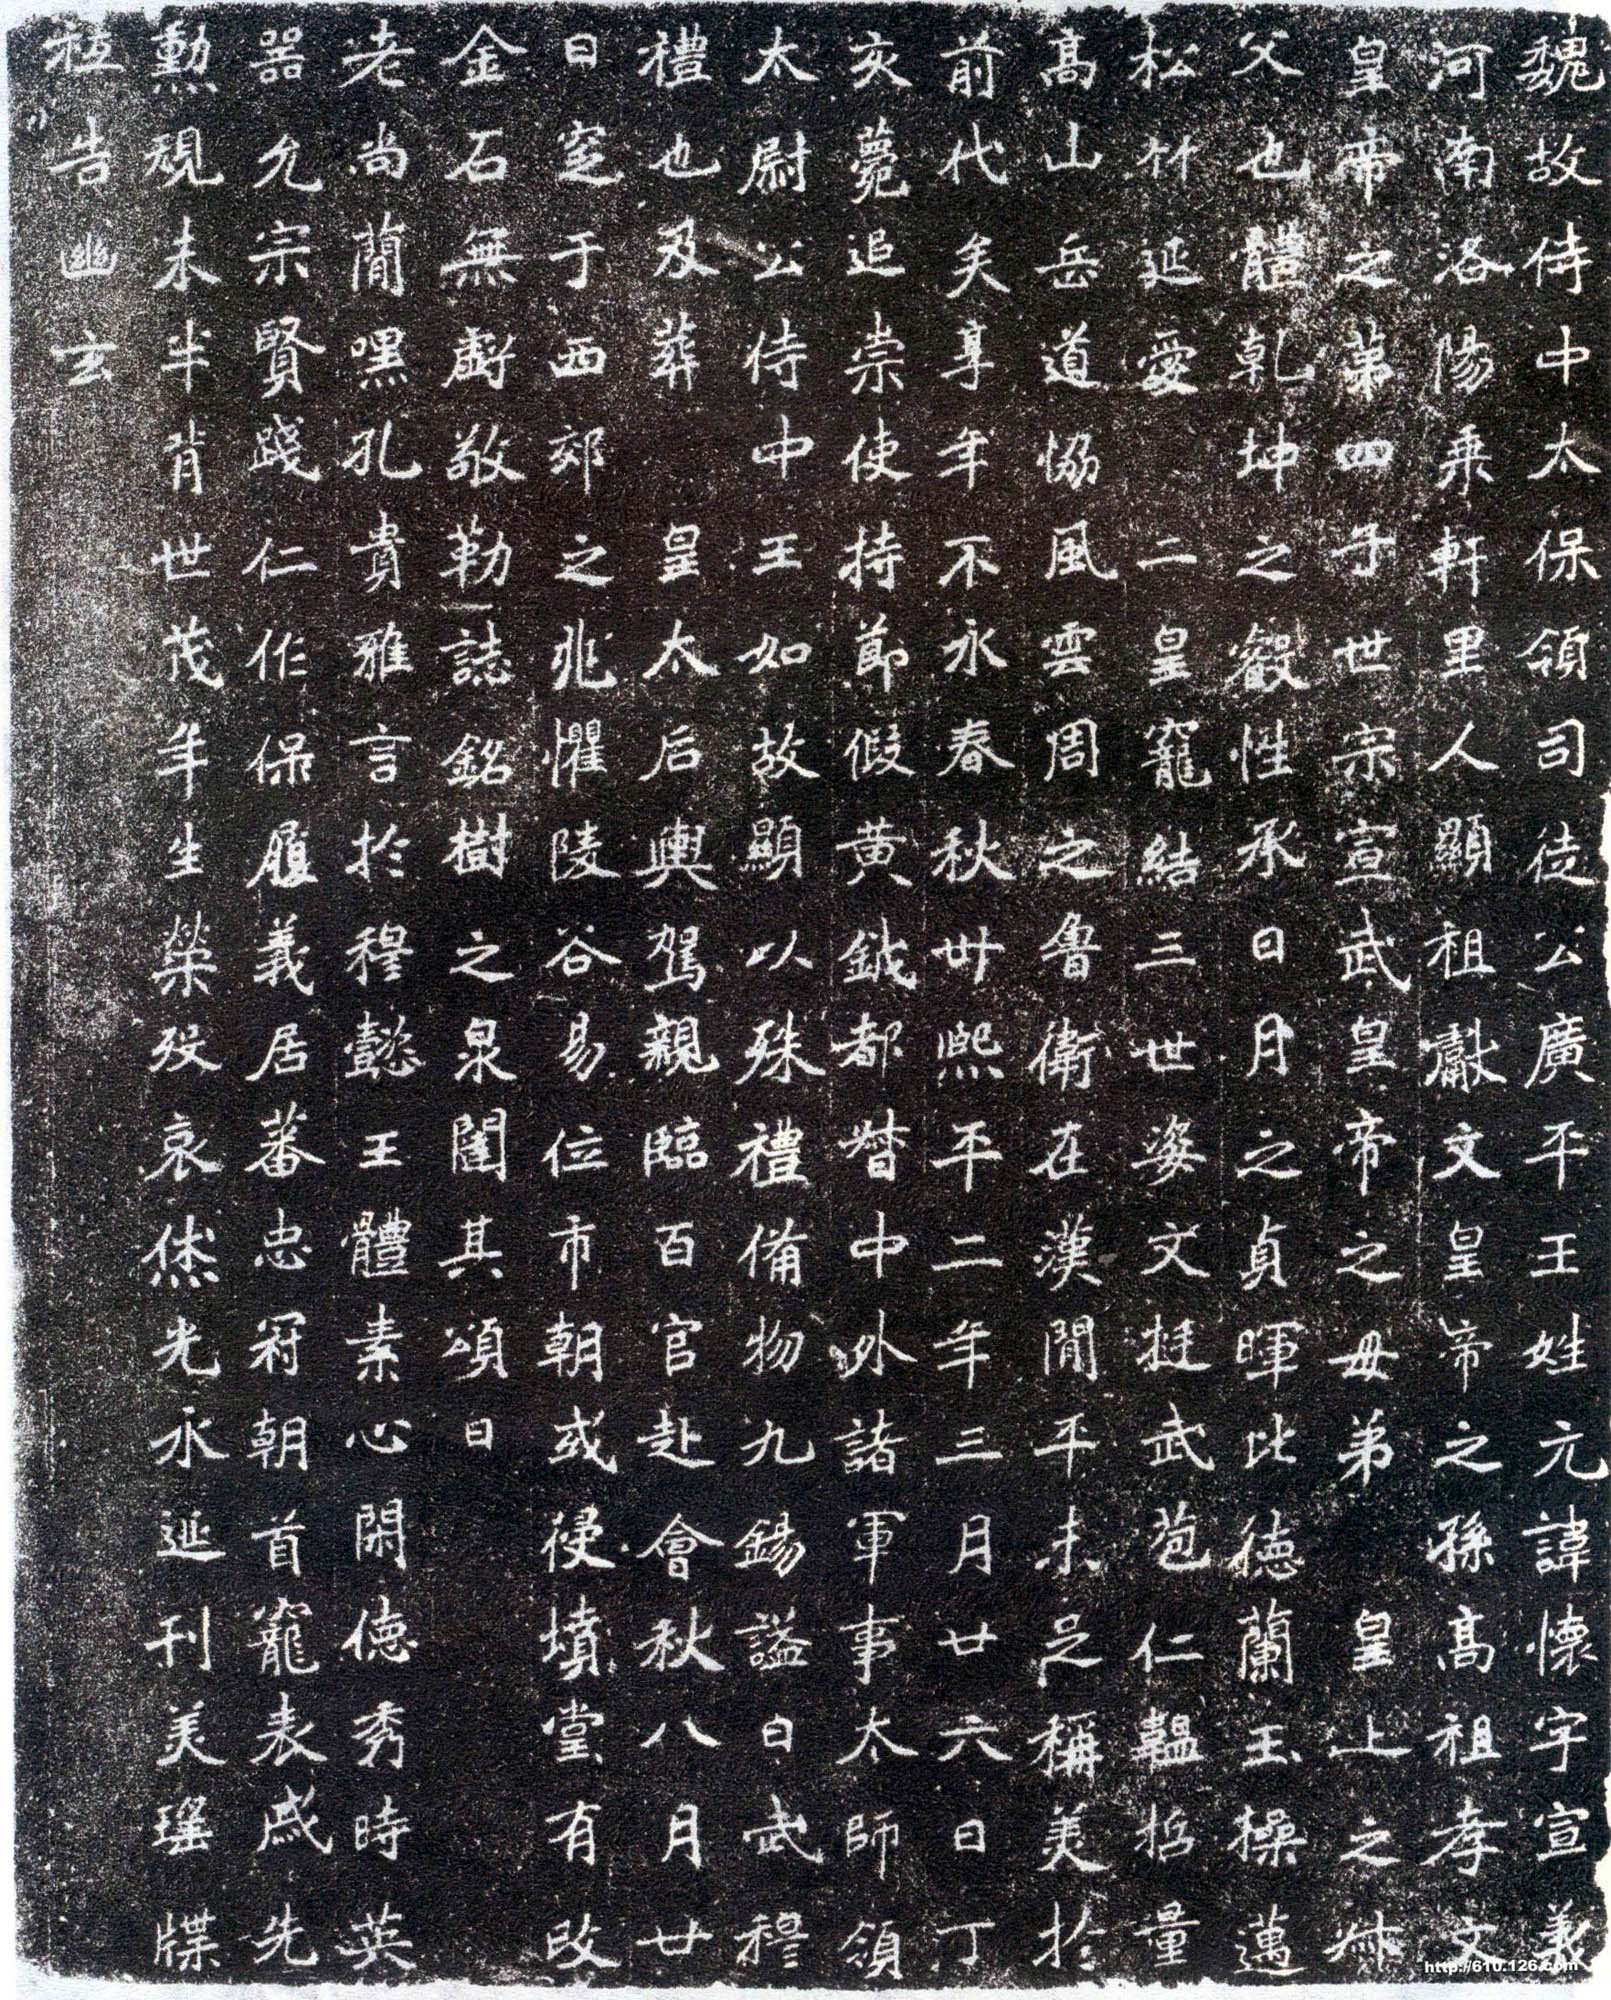 魏故侍中太保領司徒公廣平王姓元諱懷字宣義
河南洛陽乘軒里人顯祖獻文皇帝之孫高祖孝文
皇帝之第四子世宗宣武皇皇帝之母弟皇上之叔
父也體乾坤之叡性承日月之貞暉比德蘭玉操邁
松竹延愛二皇寵結三世姿文挺武苞仁韞哲量
高山岳道協風雲周之魯衛在漢閒平未足稱美於
前代矣享年不永春秋卅熙平二年三月廿六日丁
亥薨追崇使持節假黃鉞都督中外諸軍事太師領
太尉公侍中王如故顯以殊禮備物九錫謚曰武穆
禮也及葬皇太后輿駕親臨百官赴會秋八月廿
日窆于西郊之兆懼陵谷易位市朝或侵墳堂有改
金石無虧敬勒誌銘樹之泉闥其頌曰
老尚簡嘿孔貴雅言於穆懿王體素心閑德秀時英
器允宗賢踐仁作保履義居蕃忠冠朝首寵表戚先
勳覬未半背世茂年生榮歿哀休光永延刊美瑤牒
祗告幽玄
http://610.126.com